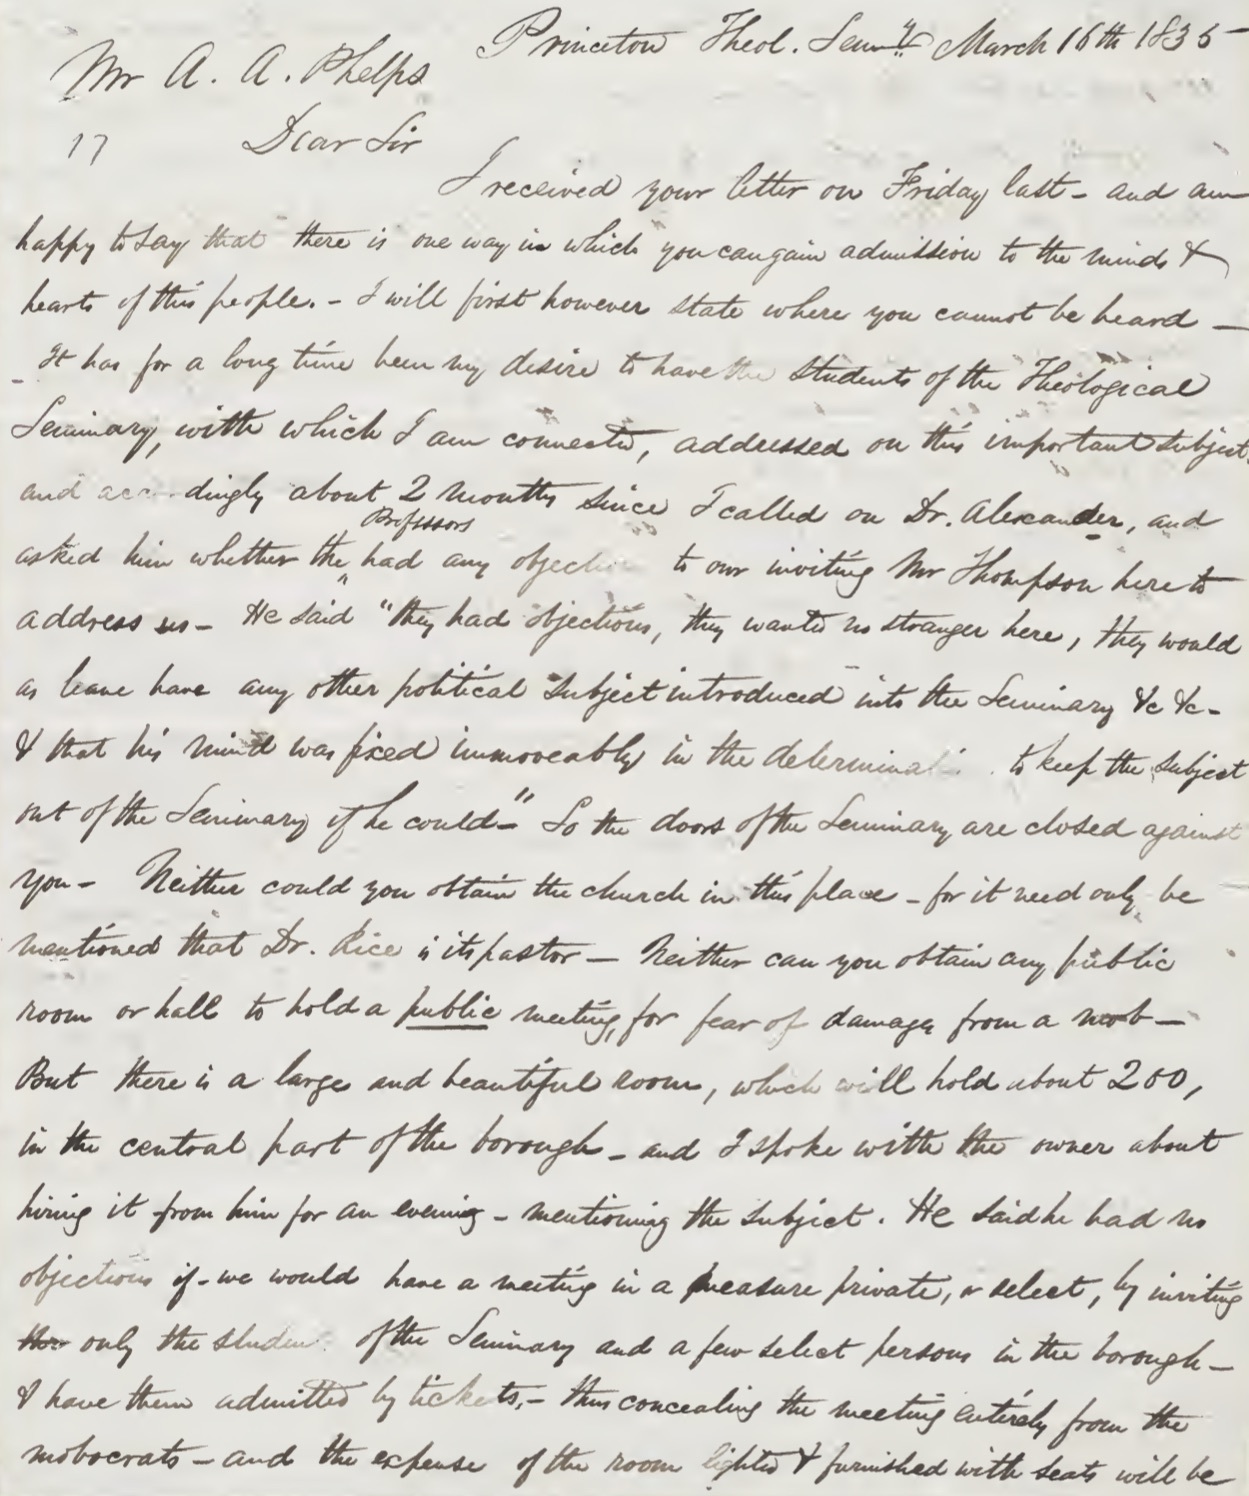 Princeton Theol. Semy. March 16th 1835
Mr A. A. Phelps
17 Dear Sir
I received your letter on Friday last - and am
happy to say that there is one way in which you can gain admission to the minds &
hearts of this people. - I will first however state where you cannot be heard -
- It has for a long time been my desire to have the students of the Theological
Seminary, with which I am connected, addressed on this important subject.
and accordingly about 2 months since I called on Dr. Alexander, and
Professors
asked him whether the ^ had any objection to our inviting Mr Thompson here to
address us - He said "they had objections, they wanted no stranger here, they would
as leave have any other political subject introduced into the Seminary &c &c -
& that his mind was fixed immoveably in the determinati to keep the subject
out of the Seminary if he could -" So the doors of the Seminary are closed against
you - Neither could you obtain the church in this place - for it need only be
mentioned that Dr. Rice is its pastor - Neither can you obtain any public
room or hall to hold a public meeting, for fear of damage from a mob -
But there is a large and beautiful room, which will hold about 200,
in the central part of the borough - and I spoke with the owner about
hiring it from him for an evening - mentioning the subject. He said he had no
objections if we would have a meeting in a measure private, or select, by inviting
only the studen of the Seminary and a few select persons in the borough -
& have them admitted by tickets, - thus concealing the meeting entirely from the
mobocrats - and the expense of the room lighted & furnished with seats will be